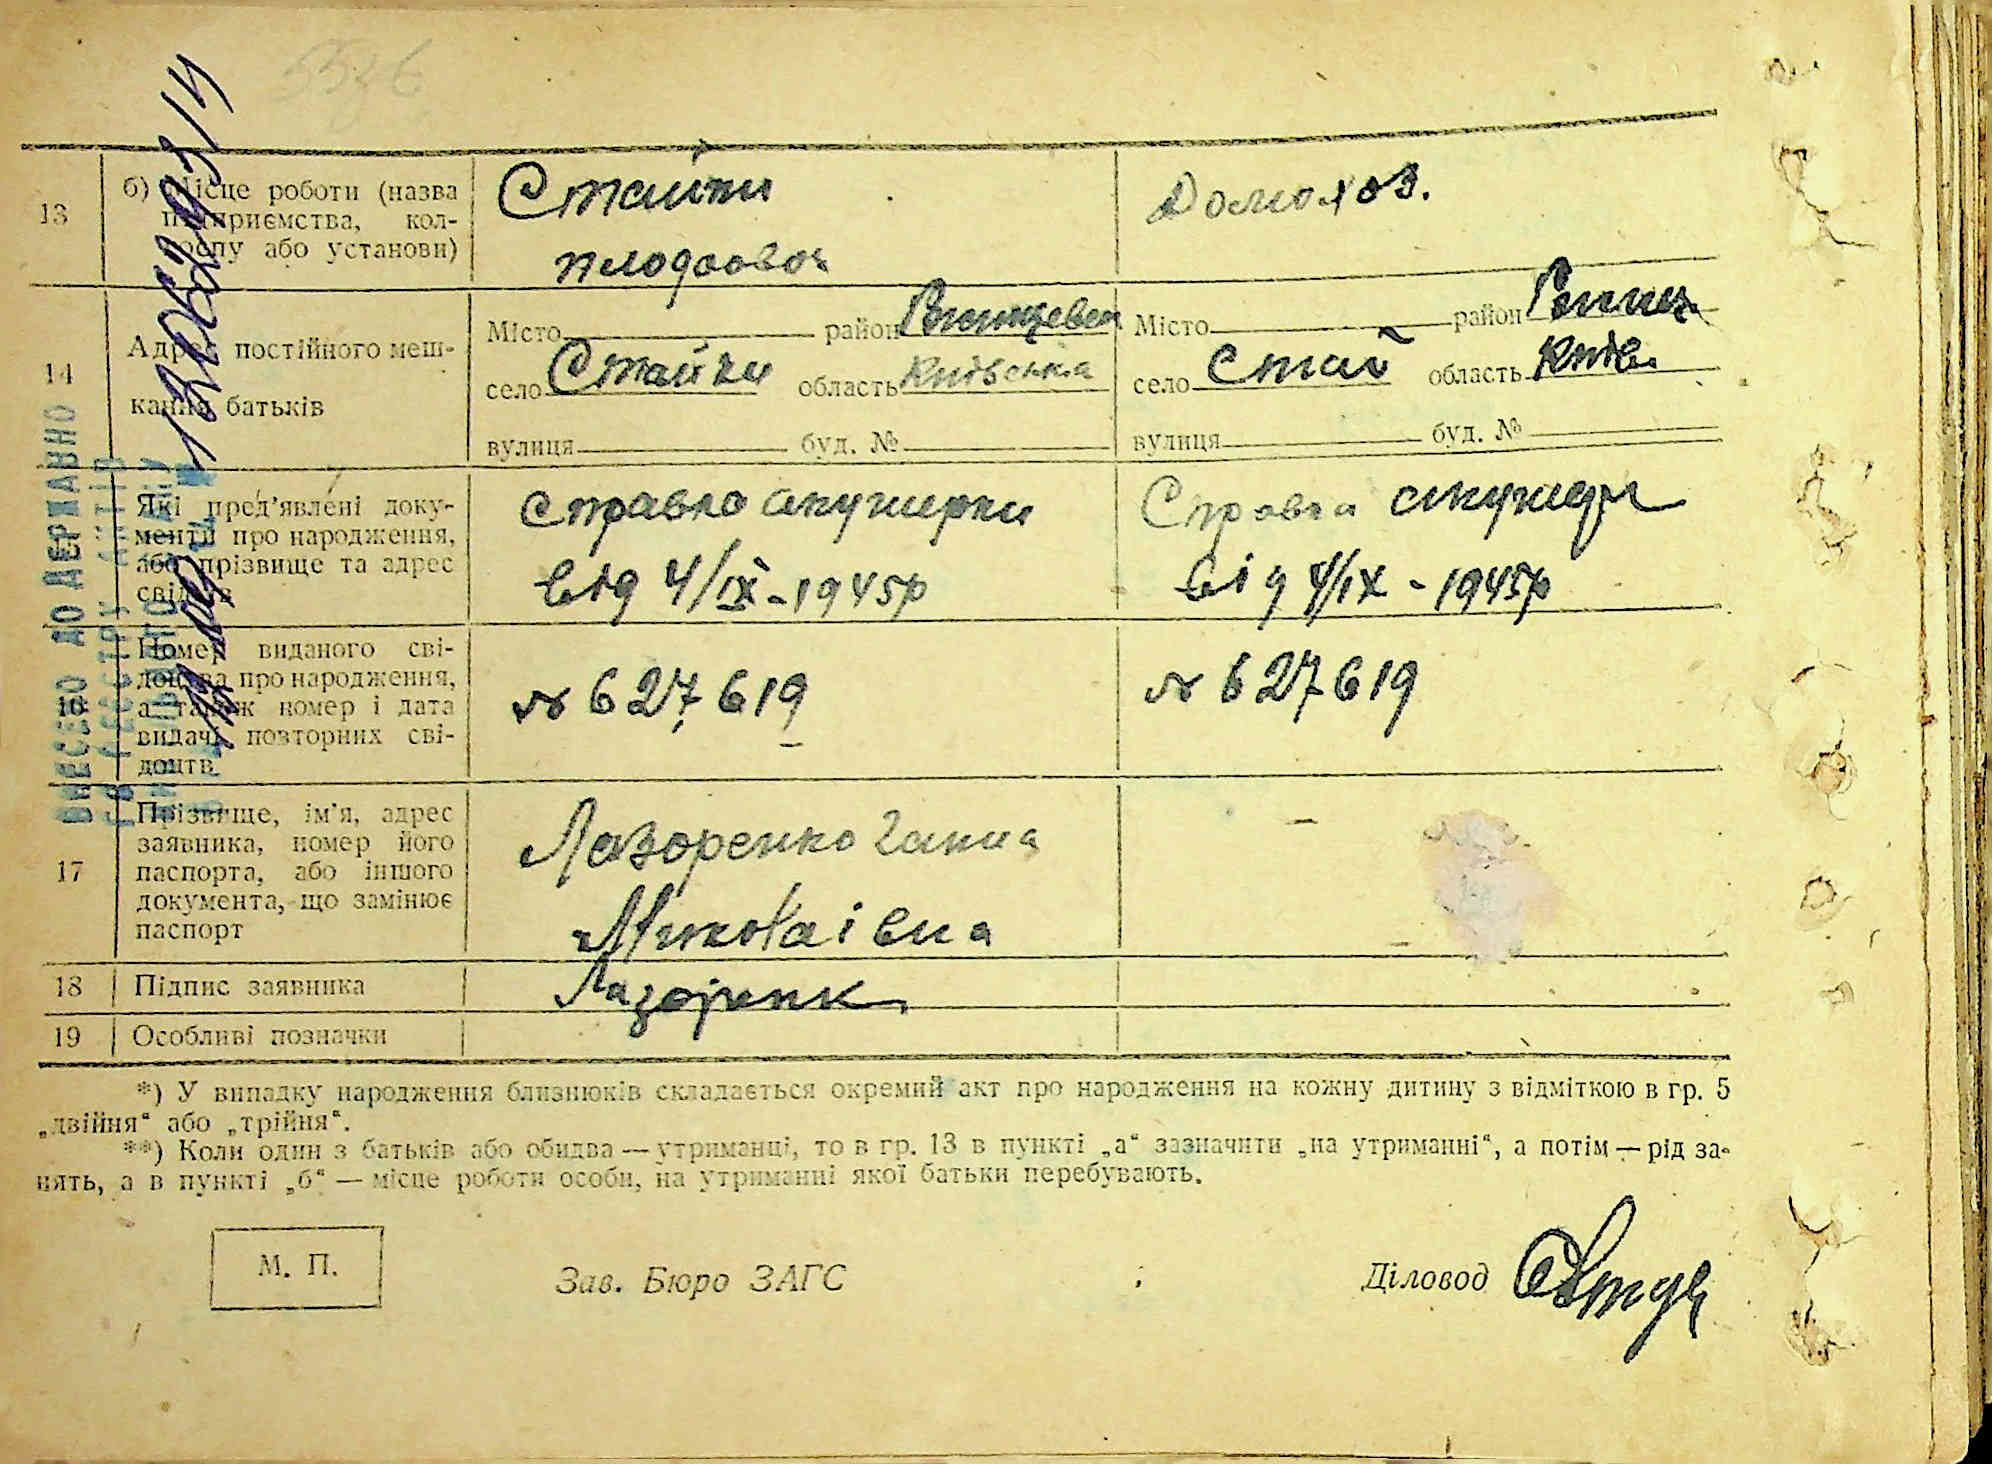 5526
13
б) Місце роботи (назва
підприємства, кол-
госпу або установи)
Стайки
плодоовоч
Домохоз.
14
Адрес постійного меш-
кання батьків
Місто район
село Стайки область Київська
вулиця буд. №
Місто район
село Стай область Київ
вулиця буд. №
15
Які пред’явлені доку-
менти про народження,
або прізвище та адрес
свідків
Справка акушерки
від 4/IX-1945р
Справка акушерк
від 4/IX-1945р
16
Номер виданого сві-
доцтва про народження,
а також номер і дата
видачі повторних сві-
доцтв
№ 627619
№ 627619
17
Прізвище, ім’я, адрес
заявника, номер його
паспорта, або іншого
документа, що замінює
паспорт
Лазоренко Ганна
Миколаівна
18
Підпис заявника
Лазоренк
19
Особливі позначки
*) У випадку народження близнюків складається окремий акт про народження на кожну дитину з відміткою в гр. 5
„двійня“ або „трійня“.
**) Коли один з батьків або обидва — утриманці, то в гр. 13 в пункті „а“ зазначити „на утриманні“, а потім — рід за-
нять, а в пункті „б“ — місце роботи особи, на утриманні якої батьки перебувають.
М. П.
Зав. Бюро ЗАГС
Діловод
ВНЕСЕНО ДО ДЕРЖАВНО